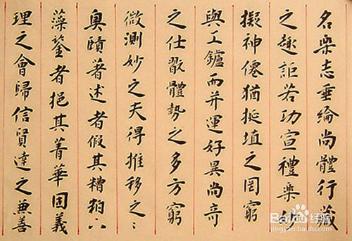 名樂志垂綸尚體行藏
之趣詎若功宣禮樂妙
擬神僊猶埏埴之罔窮
與工鑪而并運好異尚奇
之仕翫體勢之多方窮
微測妙之夫得推移之
奧賾著述者假其糟粕
藻鑒者挹其菁華固義
理之會歸信賢達之兼善
Bai 经验